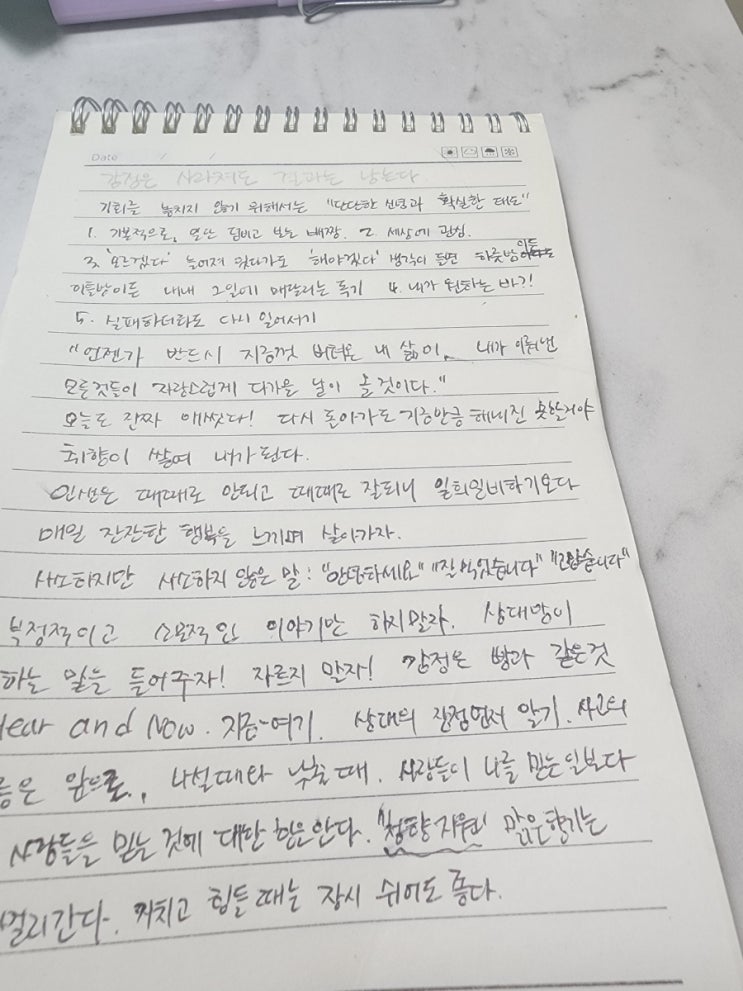 Date / /
감정은 사라져도 결과는 남는다.
기회를 놓치지 않기 위해서는 "단단한 신념과 확실한 태도"
1. 기본적으로, 일단 덤비고 보는 배짱. 2. 세상에 관심.
3. '모르겠다' 늘어져 있다가도 '해야겠다' 생각이 들면 하룻밤이든
이틀밤이든 내내 그일에 매달리는 독기 4. 내가 원하는 바?!
5. 실패하더라도 다시 일어서기
"언젠가 반드시 지금껏 버텨온 내 삶이, 내가 이뤄낸
모든것들이 자랑스럽게 다가올 날이 올 것이다."
오늘도 진짜 애썼다! 다시 돌아가도 지금만큼 해내진 못할거야
취향이 쌓여 내가 된다.
인생은 때때로 안되고 때때로 잘되니 일희일비하기보다
매일 잔잔한 행복을 느끼며 살아가자.
사소하지만 사소하지 않은 말 : "안녕하세요" "잘 먹었습니다" "고맙습니다"
부정적이고 소모적인 이야기만 하지말자. 상대방이
하는 말을 들어주자! 자르지 말자! 감정은 빵과 같은것
Hear and Now. 지금-여기. 상대의 진정먼저 알기. 사고의
앞으로, 나설때와 낮출 때. 사람들이 나를 믿는 일보다
사람들을 믿는 것에 대한 힘을 안다. "청향자원" 맑은 향기는
멀리간다. 지치고 힘들 때는 잠시 쉬어도 좋다.